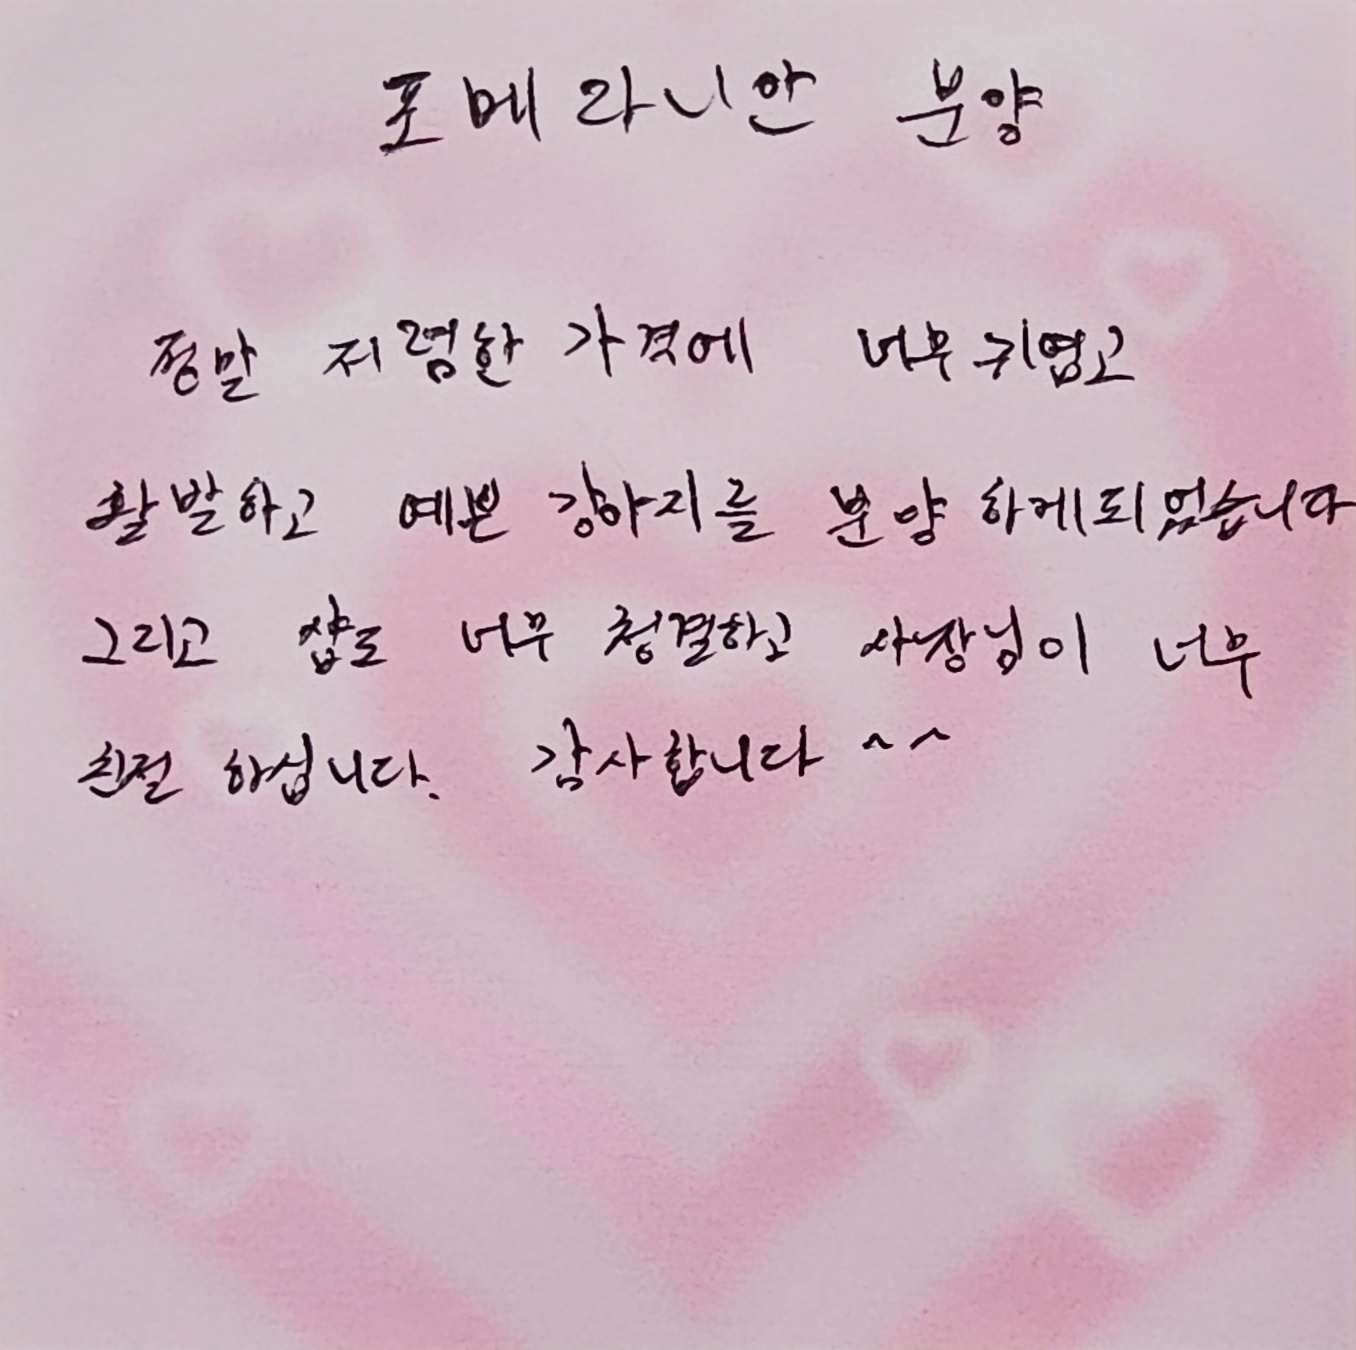 포메라니안 분양
정말 저렴한 가격에 너무 귀엽고
활발하고 예쁜 강아지를 분양 하게되었습니다
그리고 샵도 너무 청결하고 사장님이 너무
친절 하십니다. 감사합니다 ^^